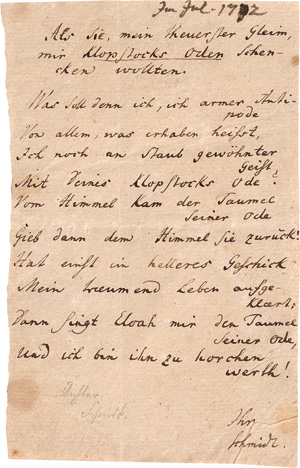 Im Jul. 1772
Als Sie, mein theuerster Gleim,
mir Klopstocks Oden schen-
cken wollten.
Was soll denn ich, ich armer Anti-
pode
Von allem, was erhaben heißt,
Ich noch an Staub gewöhnter
Geist?
Mit Deines Klopstocks Ode?
Vom Himmel kam der Taumel
seiner Ode
Gieb dann dem Himmel sie zurück!
Hat einst ein helleres Geschick
Mein träumend Leben aufge-
klärt;
Dann singt Eloah mir den Taumel
seiner Ode,
Und ich bin ihn zu horchen
werth!
Schmidt.
Ihr
Schmidt